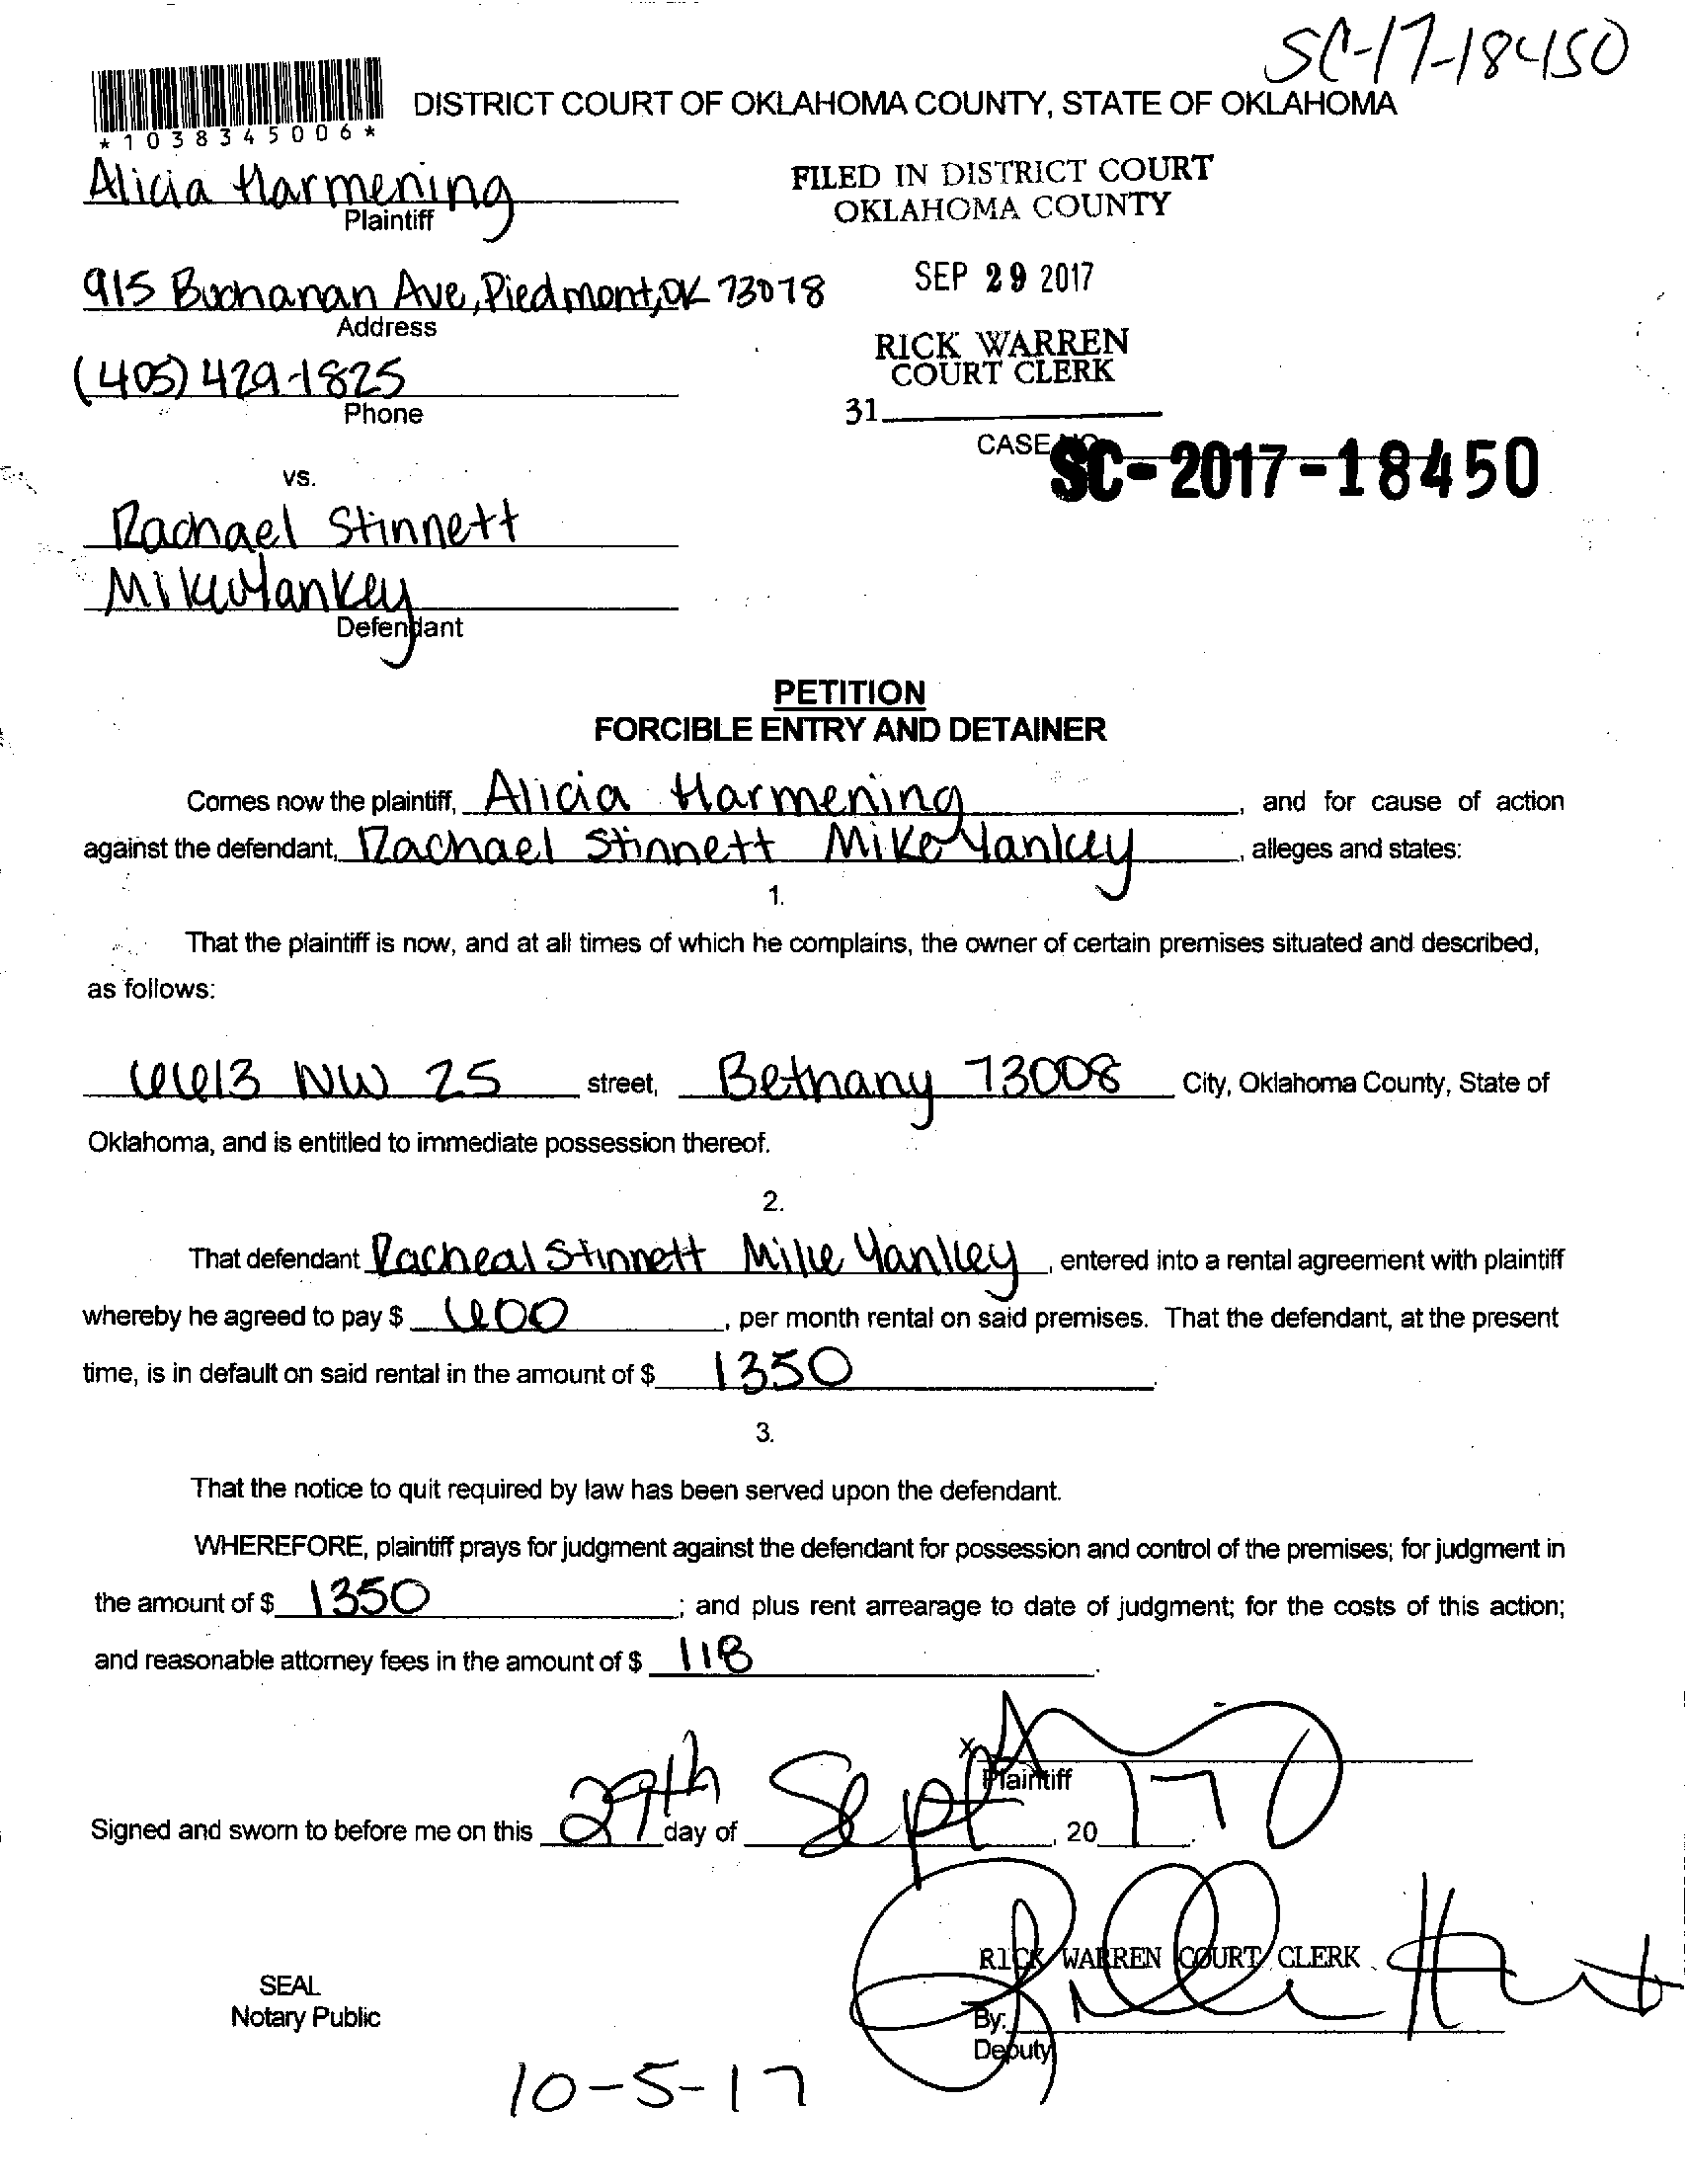 SC-17-18450
DISTRICT COURT OF OKLAHOMA COUNTY, STATE OF OKLAHOMA
*1038345006*
Alicia Harmening
Plaintiff
FILED IN DISTRICT COURT
OKLAHOMA COUNTY
915 Buchanan Ave, Piedmont, OK 73078
Address
SEP 29 2017
RICK WARREN
COURT CLERK
(405) 429-1825
Phone
31
CASE NO. SC-2017-18450
vs.
Rachael Stinnett
Mike Yankey
Defendant
PETITION
FORCIBLE ENTRY AND DETAINER
Comes now the plaintiff, Alicia Harmening, and for cause of action
against the defendant, Rachael Stinnett Mike Yankey, alleges and states:
1.
That the plaintiff is now, and at all times of which he complains, the owner of certain premises situated and described,
as follows:
6613 NW 25 street, Bethany 73008 City, Oklahoma County, State of
Oklahoma, and is entitled to immediate possession thereof.
2.
That defendant Racheal Stinnett Mike Yankey, entered into a rental agreement with plaintiff
whereby he agreed to pay $ 600, per month rental on said premises. That the defendant, at the present
time, is in default on said rental in the amount of $ 1350.
3.
That the notice to quit required by law has been served upon the defendant.
WHEREFORE, plaintiff prays for judgment against the defendant for possession and control of the premises; for judgment in
the amount of $ 1350; and plus rent arrearage to date of judgment; for the costs of this action;
and reasonable attorney fees in the amount of $ 118.
x
Plaintiff
Signed and sworn to before me on this 29th day of Sept, 2017.
RICK WARREN COURT CLERK
SEAL
Notary Public
By:
Deputy
10-5-17